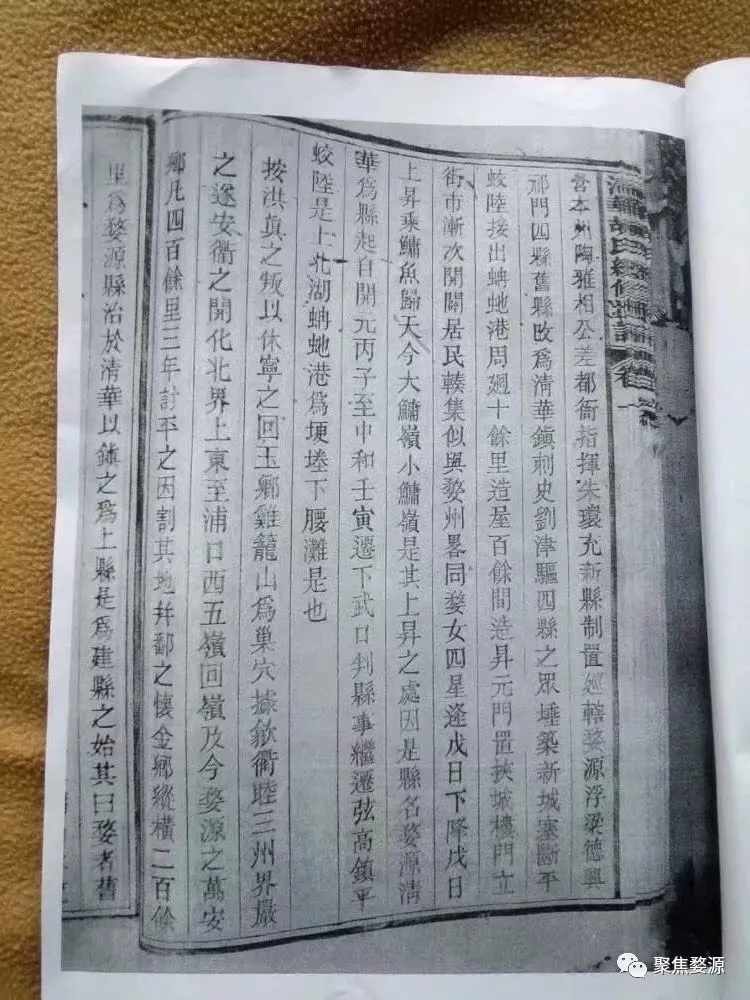 清華胡氏統修宗譜 卷一
營本州陶雅相公差都衙指揮朱環充新縣制置巡轄婺源浮梁德興
祁門四縣舊縣改為清華鎮刺史劉津驅四縣之眾埵築新城塞斷平
蚊陸接出蚺虵港周廻十餘里造屋百餘間造昇元門置挾城樓門立
街市漸次開闢居民輳集似與婺州畧同婺女四星逢戊日下降戊日
上昇乘鱅魚歸天今大鱅嶺小鱅嶺是其上昇之處因是縣名婺源清
華為縣起自開元丙子至中和壬寅遷下武口判縣事繼遷弦高鎮平
蛟陸是上北湖蚺虵港為埂埊下腰灘是也
按洪真之叛以休寧之回玉鄉雞籠山為巢穴據歙衢睦三州界嚴
之遂安衢之開化北界上東至浦口西五嶺回嶺及今婺源之萬安
鄉凡四百餘里三年討平之因割其地幷鄱之懷金鄉縱橫二百餘
里為婺源縣治於清華以鎮之為上縣是為建縣之始其曰婺者舊
聚焦婺源